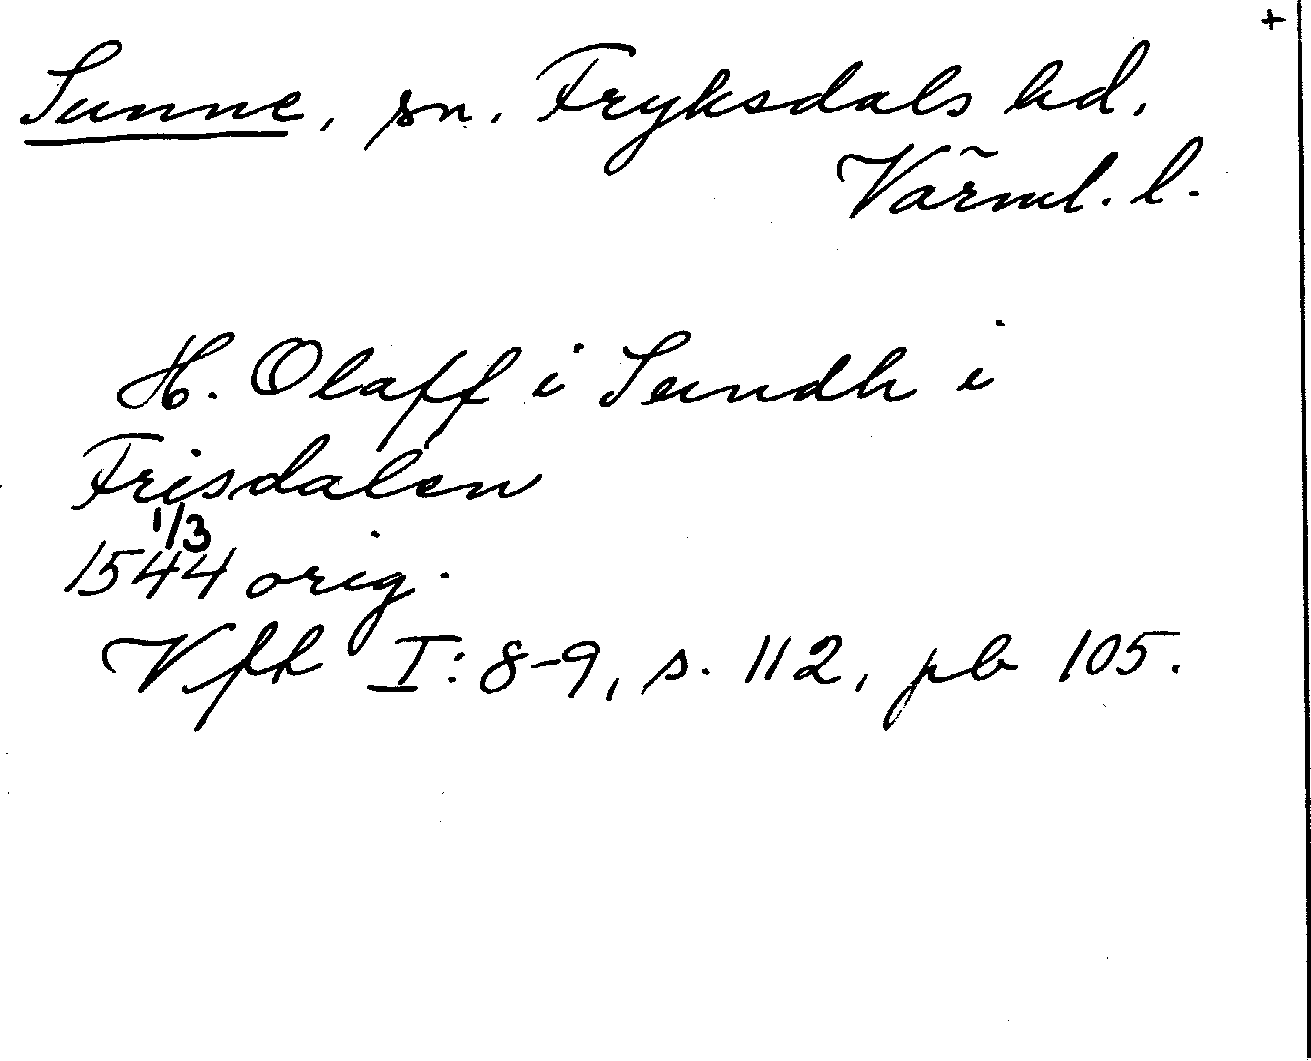 +
Sunne, sn. Fryksdals hd,
Värml. l.
H. Olaff i Sundh i
Frisdalen
1/3
1544 orig.
Vfh I: 8-9, s. 112, pb 105.